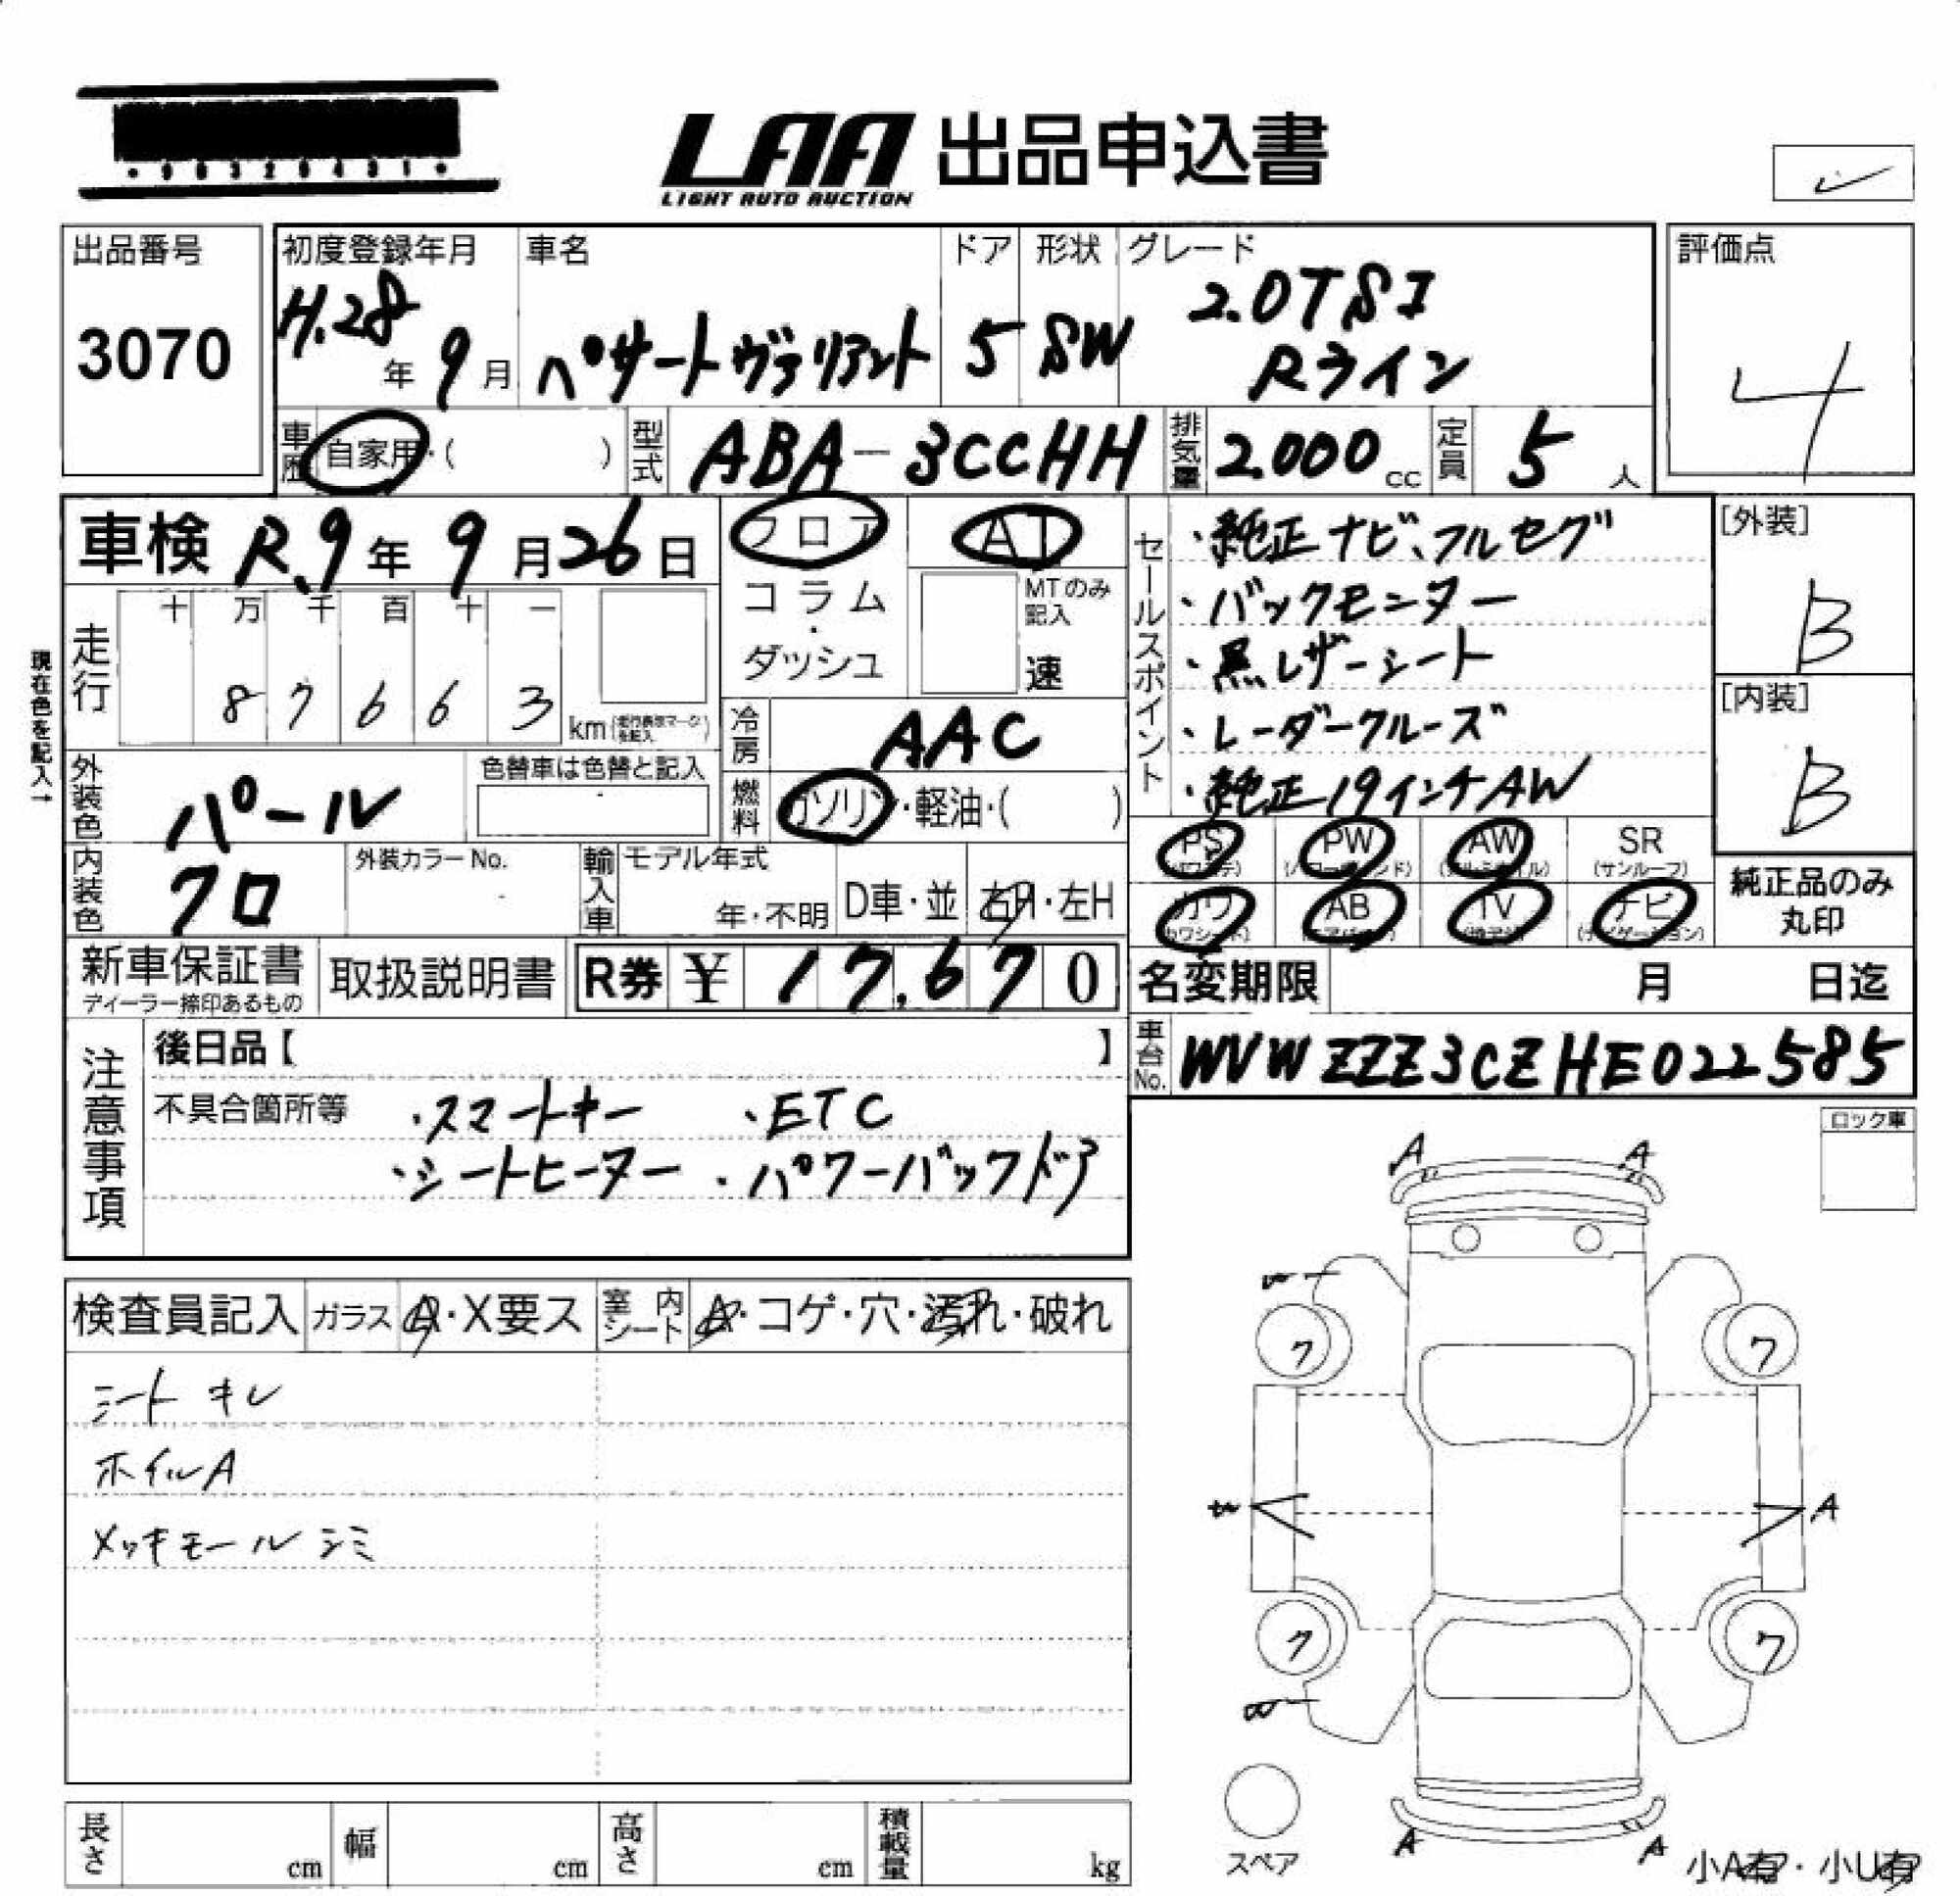 LAA 出品申込書
LIGHT AUTO AUCTION
出品番号
3070
初度登録年月
H.28年 9月
車名
パサート ヴァリアント
ドア
5
形状
SW
グレード
2.0TSI
Rライン
評価点
4
車歴 自家用・( )
型式 ABA-3CCHH
排気量 2.000 cc
定員 5 人
車検 R.9年 9月 26日
フロア
コラム
・
ダッシュ
AT
MTのみ
記入
速
現在色を記入→
走行
十 万 千 百 十 一
8 7 6 6 3
km
冷房 AAC
燃料 ガソリン・軽油・( )
外装色 パール
色替車は色替と記入
内装色 クロ
外装カラーNo.
輸入車
モデル年式
年・不明
D車・並
右H・左H
セールスポイント
・純正ナビ、フルセグ
・バックモニター
・黒レザーシート
・レーダークルーズ
・純正19インチAW
[外装]
B
[内装]
B
PS PW AW SR
(サンルーフ)
カワ AB TV ナビ
純正品のみ
丸印
新車保証書
ディーラー捺印あるもの
取扱説明書
R券 ¥ 17,670
名変期限 月 日迄
車台No. WVWZZZ3CZHE022585
注意事項
後日品【 】
不具合箇所等
・スマートキー ・ETC
・シートヒーター ・パワーバックドア
ロック車
検査員記入
ガラス A・X要ス
室内シート A・コゲ・穴・汚れ・破れ
シート キレ
ホイルA
メッキモール シミ
A A
ワ ワ
A
ワ ワ
A A
スペア
小A有・小U有
長さ cm
幅 cm
高さ cm
積載量 kg